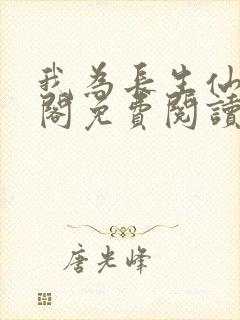 我为长生仙
阁免费阅读
唐光峰